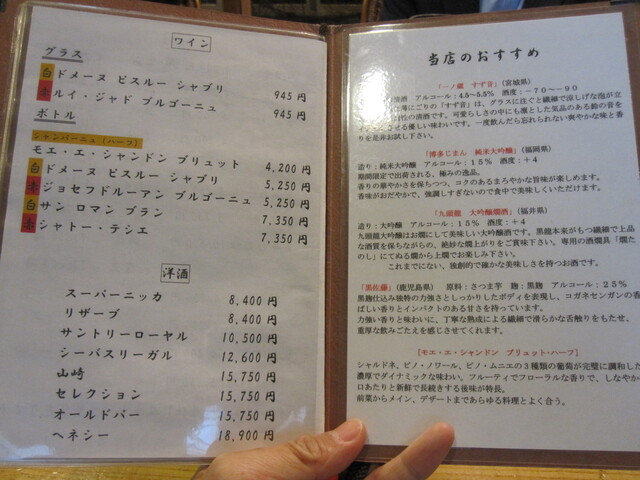 ワイン
グラス
白 ドメーヌ ビスルー シャブリ 945円
赤 ルイ・ジャド ブルゴーニュ 945円
ボトル
シャンパーニュ(ハーフ)
モエ・エ・シャンドン ブリュット 4,200円
白 ドメーヌ ビスルー シャブリ 5,250円
赤 ジョセフドルーアン ブルゴーニュ 5,250円
白 サン ロマン ブラン 7,350円
赤 シャトー・テシエ 7,350円
洋酒
スーパーニッカ 8,400円
リザーブ 8,400円
サントリーローヤル 10,500円
シーバスリーガル 12,600円
山崎 15,750円
セレクション 15,750円
オールドパー 15,750円
ヘネシー 18,900円
当店のおすすめ
「一ノ蔵 すず音」(宮城県)
清酒 アルコール:4.5~5.5% 酒度:-70~-90
にごり「すず音」は、グラスに注ぐと繊細で涼しげな泡が立
の清酒です。可愛らしさの中にも凛とした気品のある鈴の音を
させる優しい味わいです。一度飲んだら忘れられない爽やかな味と香
りを是非お試し下さい。
「博多じまん 純米大吟醸」(福岡県)
造り:純米大吟醸 アルコール:15% 酒度:+4
期間限定で出荷される、極みの逸品。
香りの華やかさを保ちつつ、コクのあるまろやかな旨味が楽しめます。
香味がおだやかで、強調しすぎないので食中で美味しくいただけます。
「九頭龍 大吟醸燗酒」(福井県)
造り:大吟醸 アルコール:15% 酒度:+4
九頭龍大吟醸はお燗にして美味しい大吟醸酒です。黒龍本来がもつ繊細で上品
な酒質を保ちながらの、絶妙な燗上がりをご賞味下さい。専用の酒燗具「燗た
のし」にてぬる燗から上燗でお楽しみ下さい。
これまでにない、独創的で確かな美味しさを持つお酒です。
「黒佐藤」(鹿児島県) 原料:さつま芋 麹:黒麹 アルコール:25%
黒麹仕込み独特の力強さとしっかりしたボディを表現し、コガネセンガンの香
ばしい香りとインパクトのある甘さを持っています。
力強い香りと味わいに、丁寧な熟成による繊細で滑らかな舌触りをもたせ、
重厚な飲みごたえを感じさせてくれます。
[モエ・エ・シャンドン ブリュット・ハーフ]
シャルドネ、ピノ・ノワール、ピノ・ムニエの3種類の葡萄が完璧に調和した
濃厚でダイナミックな味わい。フルーティでフローラルな香りで、しなやか
口あたりと新鮮で長続きする後味が特長。
前菜からメイン、デザートまであらゆる料理とよく合う。